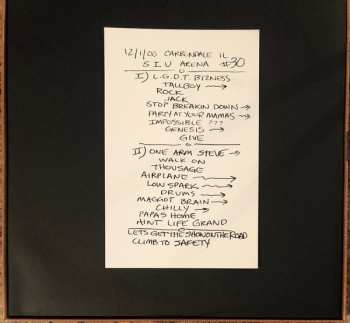 12/1/00 CARBONDALE IL
S I U ARENA #30
I) L.G.D.T. BIZNESS
TALLBOY →
ROCK
JACK
STOP BREAKIN DOWN →
PARTY AT YOUR MAMAS →
IMPOSSIBLE ???
GENESIS →
GIVE
II) ONE ARM STEVE →
WALK ON
THOUSAGE
AIRPLANE →
LOW SPARK →
DRUMS →
MAGGOT BRAIN →
CHILLY →
PAPAS HOME
AINT LIFE GRAND
LETS GET THE SHOW ON THE ROAD
CLIMB TO SAFETY